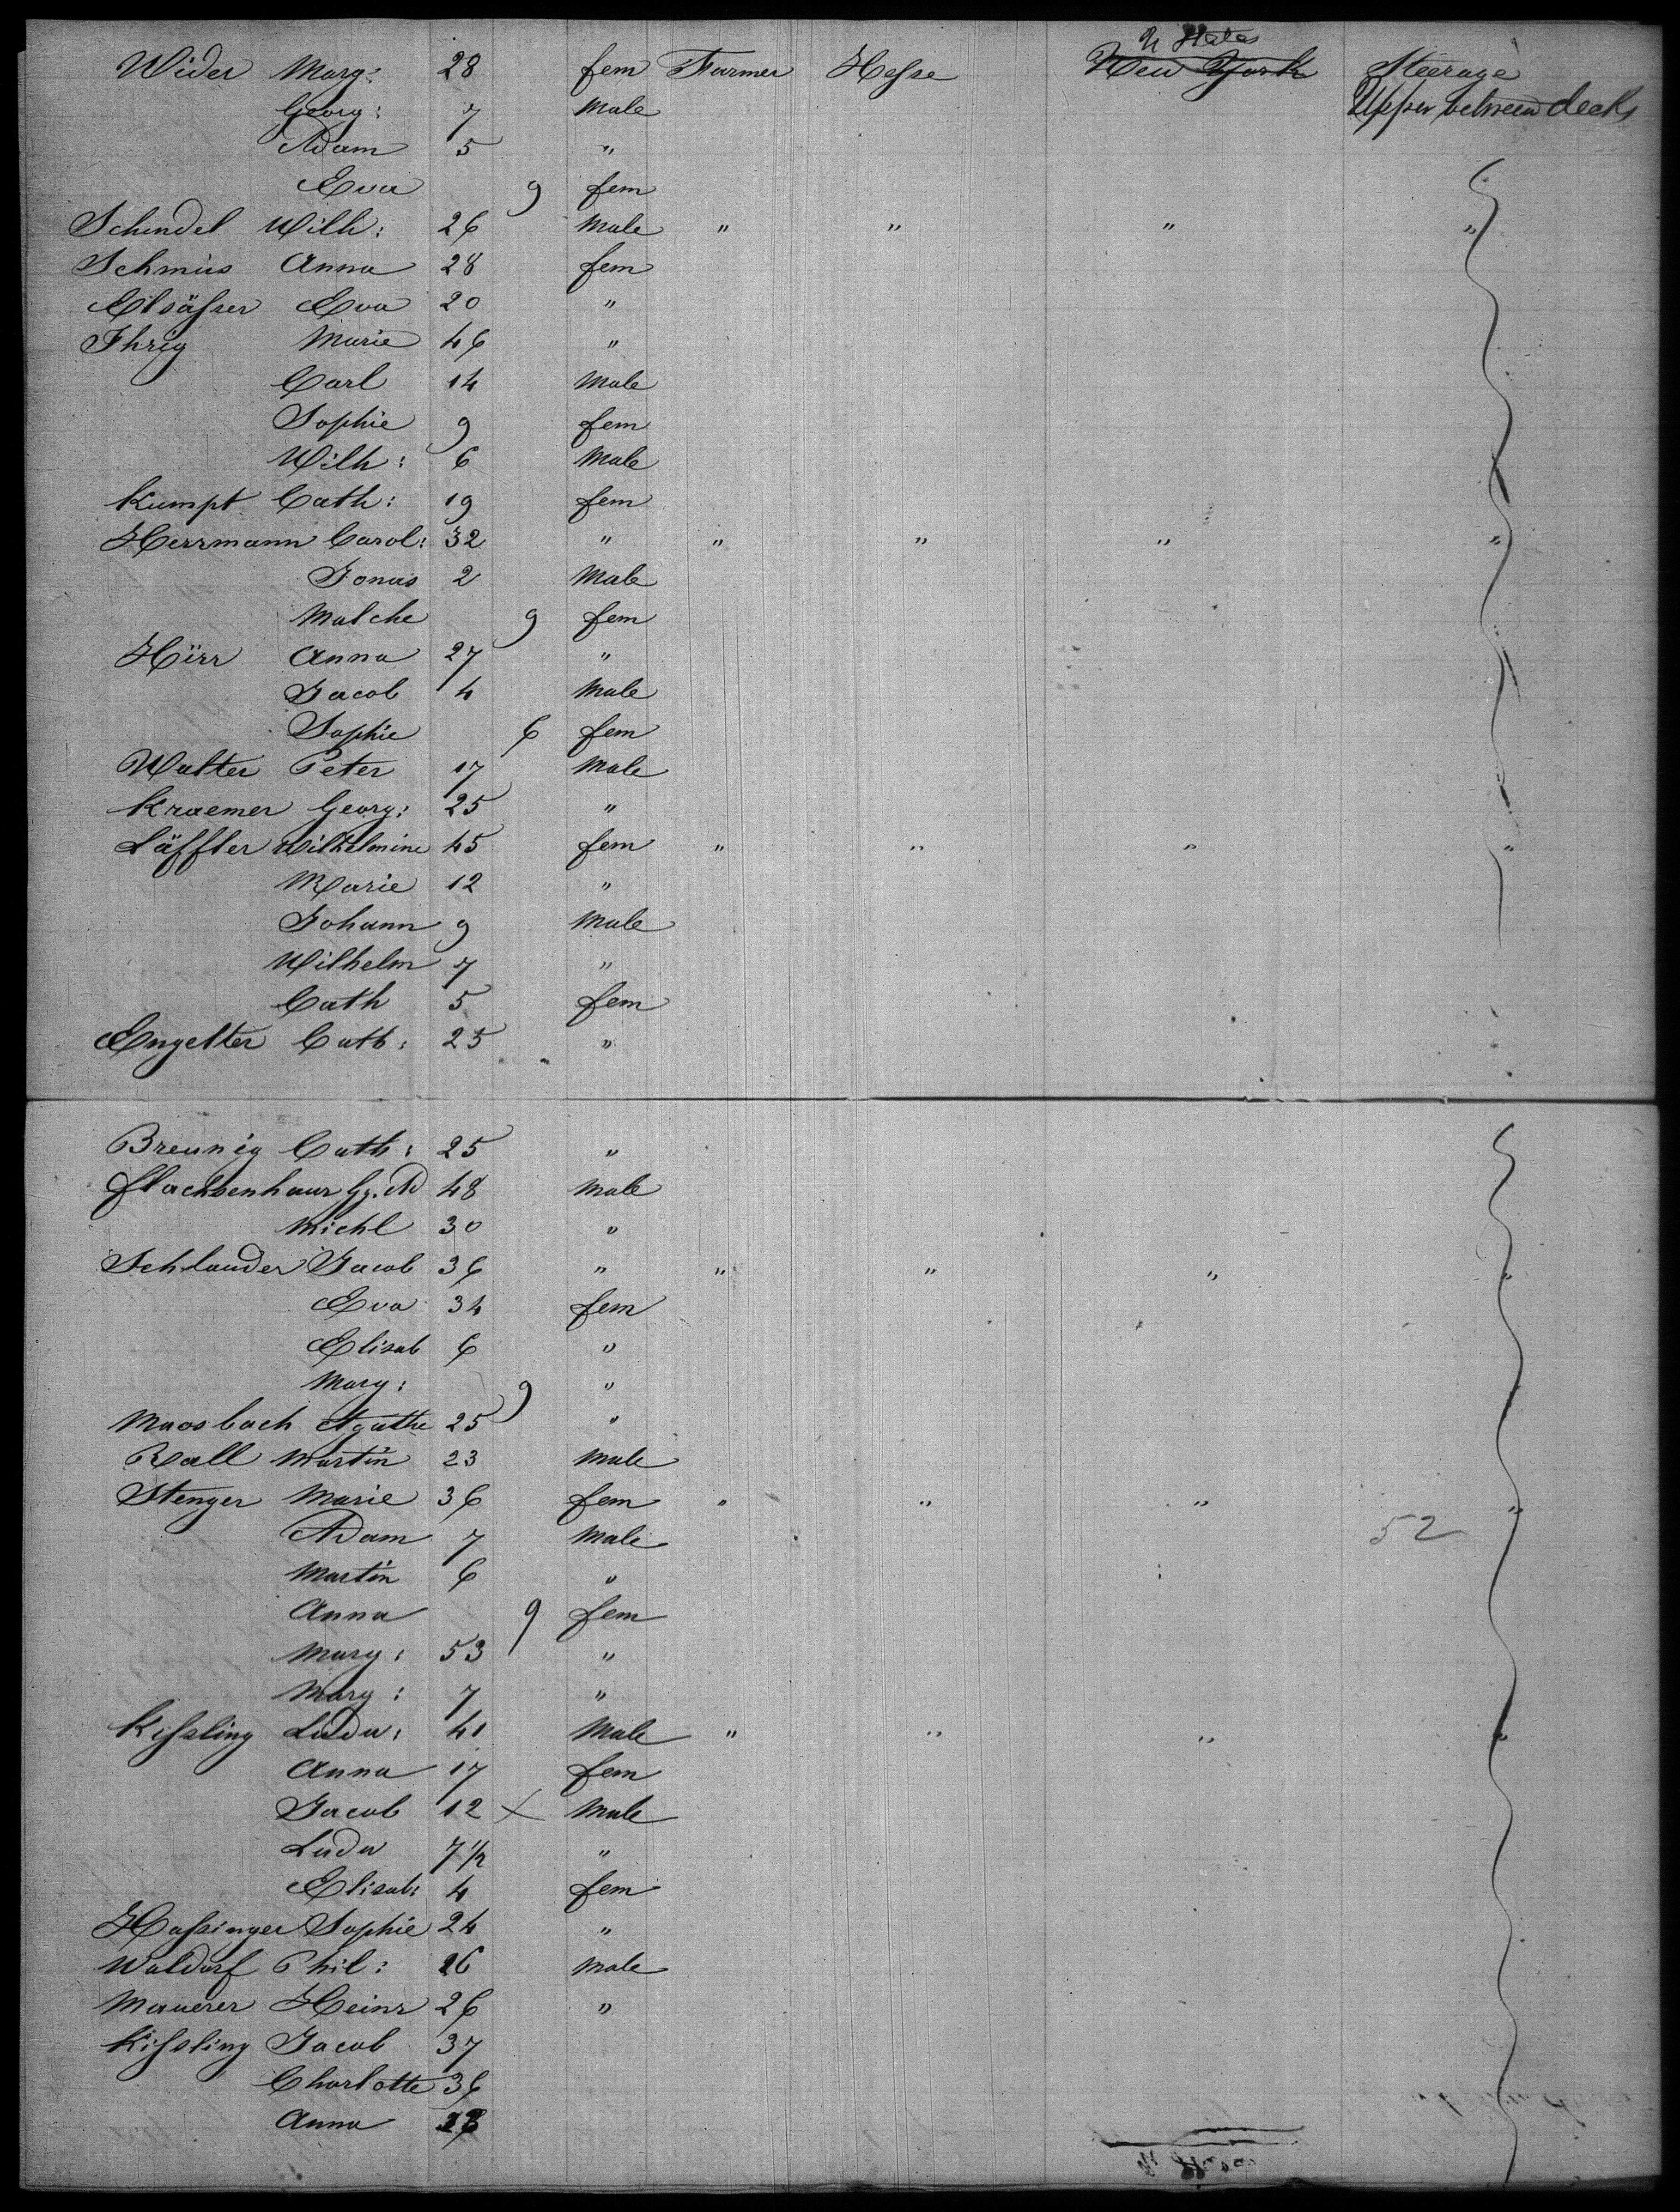 U States
Wider Marg: 28 fem Farmer Hesse New York Steerage
Georg: 7 Male Upper between decks
Adam 5 "
Eva 9 fem
Schindel Wilh: 26 Male " " " "
Schmüs Anna 28 fem
Elsässer Eva 20 "
Ihrig Marie 46 "
Carl 14 Male
Sophie 9 fem
Wilh: 6 Male
Kumpt Cath: 19 fem
Herrmann Carol: 32 " " " " "
Jonas 2 Male
Malche 9 fem
Hirr Anna 27 "
Jacob 4 Male
Sophie 6 fem
Walter Peter 17 Male
Kraemer Georg: 25 "
Läffler Wilhelmine 45 fem " " " "
Marie 12 "
Johann 9 Male
Wilhelm 7 "
Cath 5 fem
Engelter Cath: 25 "
Breunig Cath: 25 "
Flachsenhaur Gg. Ad 48 Male
Michl 30 "
Schlauder Jacob 36 " " " " "
Eva 34 fem
Elisab 6 "
Marg: 9 "
Maosbach Agathe 25 "
Rall Martin 23 Male
Stenger Marie 36 fem " " " "
Adam 7 Male 52
Martin 6 "
Anna 9 fem
Marg: 53 "
Marg: 7 "
Kissling Ludw: 41 Male " " " "
Anna 17 fem
Jacob 12 x Male
Ludw 7 1/2 "
Elisab: 4 fem
Hassinger Sophie 24 "
Waldorf Phil: 26 Male
Mauerer Heinr 26 "
Kissling Jacob 37
Charlotte 36
Anna